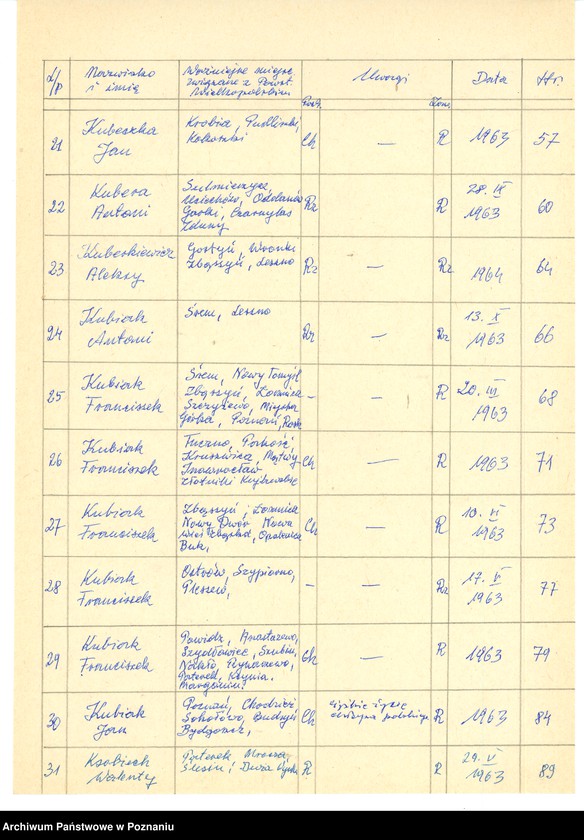 L/p Nazwisko i imię Ważniejsze miejsc. związane z Powst. Wielkopolskim Uwagi Data Str.
21 Kubeczka Jan Krobia, Pudliszki, Ch — R 1963 57
22 Kubera Antoni Sulmierzyce, Czarnylas Zduny Rz R 28. IX 1963 60
23 Kuberkiewicz Aleksy Gostyń, Wronki Zbąszyń, Leszno Rz — Rz 1964 64
24 Kubiak Antoni Śrem, Leszno Rz — Rz 13. X 1963 66
25 Kubiak Franciszek Śrem, Nowy Tomyśl Zbąszyń, Łomnica Górka, Poznań, — — R 20. III 1963 68
26 Kubiak Franciszek Tuczno, Pakość, Kruszwica, Mątwy Inowrocław Złotniki Kujawskie Ch — R 1963 71
27 Kubiak Franciszek Zbąszyń, Łomnica Nowy Dwór Nowa Wieś Zbąska, Opalenica Buk, Ch — R 10. VI 1963 73
28 Kubiak Franciszek Ostrów, Szypiorno, Pleszew, — — Rz 17. V 1963 77
29 Kubiak Franciszek Powidz, Anastazewo, Szydłowiec, Szubin, Nakło, Rynarzewo, Paterek, Kcynia. Margonin. Ch — R 1963 79
30 Kubiak Jan Poznań, Chodzież Sokołowo, Budzyń Bydgoszcz, Ch R 1963 84
31 Walenty Paterek Mrocza, Ślesin, R R 29. V 1963 89
Archiwum Państwowe w Poznaniu